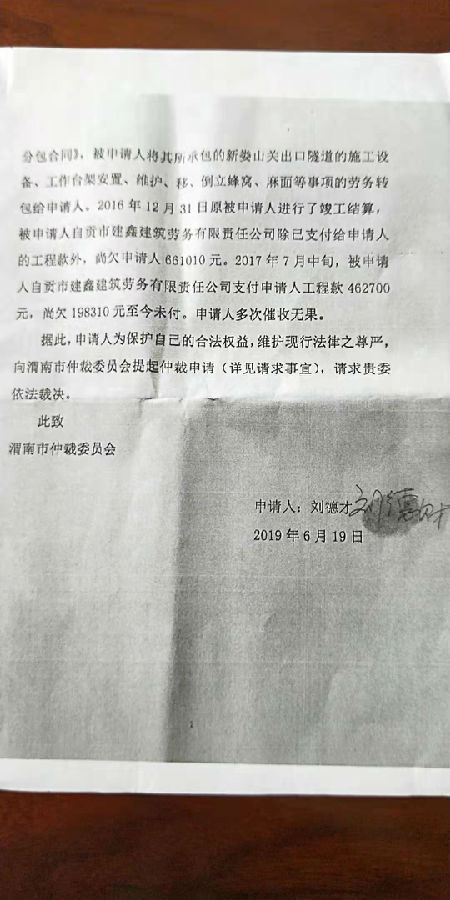 分包合同》，被申请人将其所承包的新娄山关出口隧道的施工设
备、工作台架安置、维护、移、倒立蜂窝、麻面等事项的劳务转
包给申请人。2016年12月31日原被申请人进行了竣工结算，
被申请人自贡市建鑫建筑劳务有限责任公司除已支付给申请人
的工程款外，尚欠申请人661010元。2017年7月中旬，被申请
人自贡市建鑫建筑劳务有限责任公司支付申请人工程款462700
元，尚欠198310元至今未付。申请人多次催收无果。
据此，申请人为保护自己的合法权益，维护现行法律之尊严，
向渭南市仲裁委员会提起仲裁申请（详见请求事宜），请求贵委
依法裁决。
此致
渭南市仲裁委员会
申请人：刘德才 刘德才
2019年6月19日
1